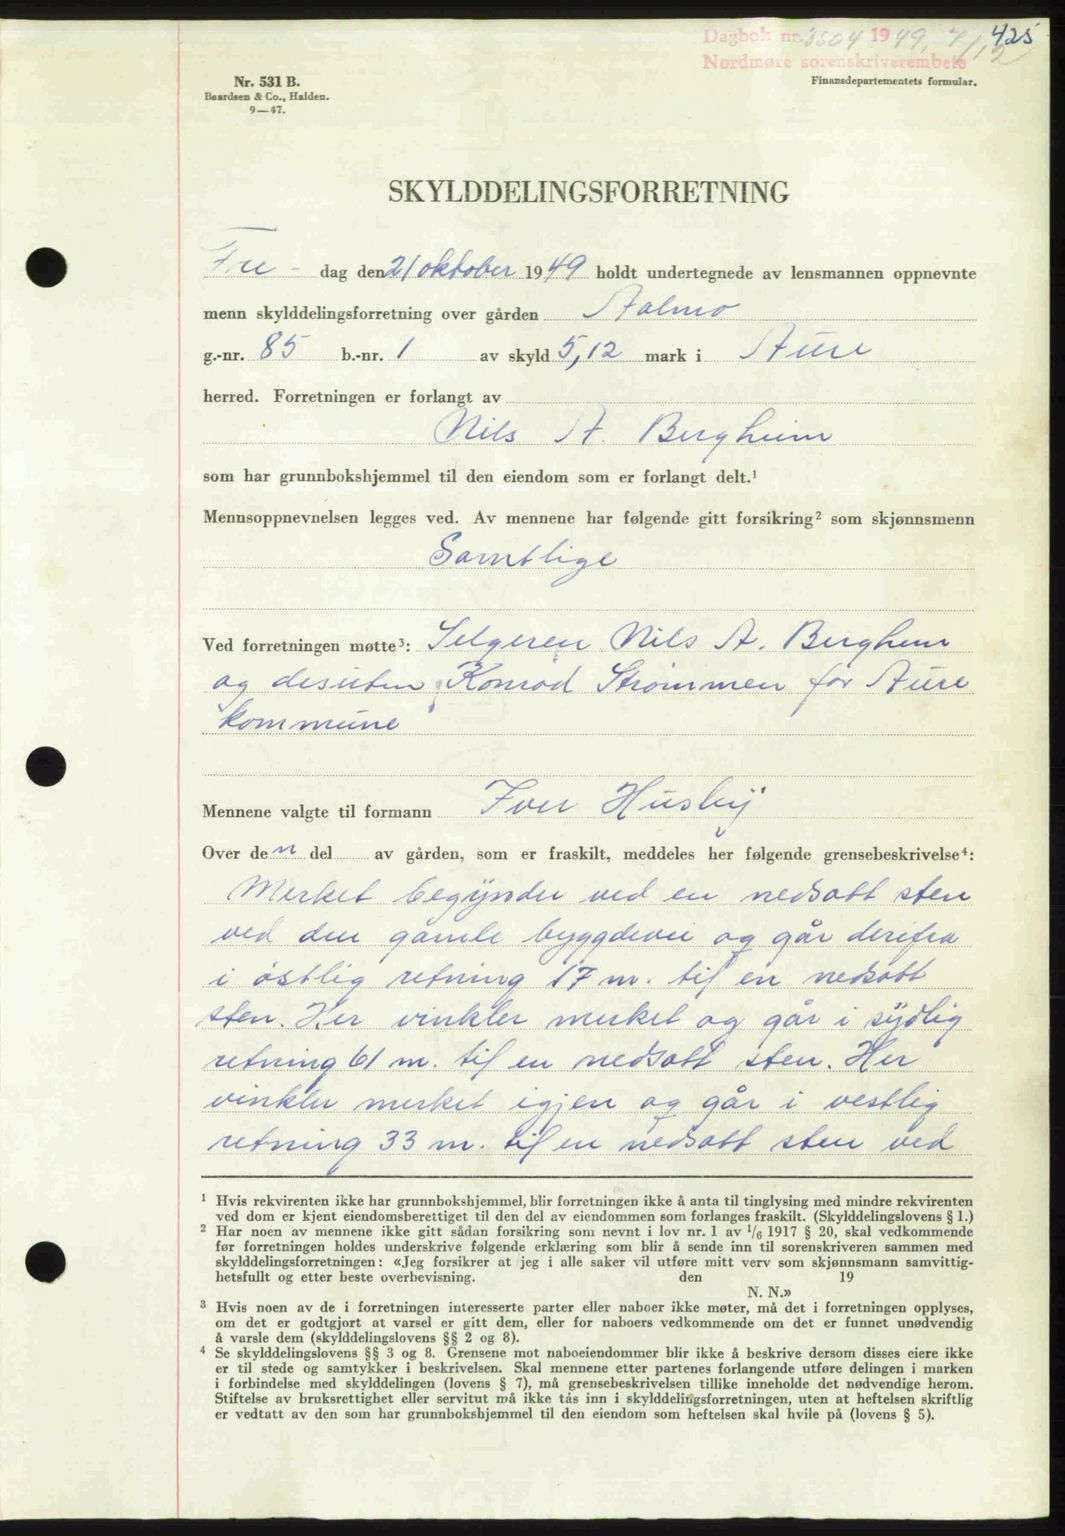 Dagbok nr. 3504 1949, 7/12 425
Nordmøre sorenskriverembete
Nr. 531 B.
Baardsen & Co., Halden.
9—47.
Finansdepartementets formular.
SKYLDDELINGSFORRETNING
Fre - dag den 21 oktober 1949 holdt undertegnede av lensmannen oppnevnte
menn skylddelingsforretning over gården Aalmo
g.-nr. 85 b.-nr. 1 av skyld 5,12 mark i Aure
herred. Forretningen er forlangt av
Nils A. Bergheim
som har grunnbokshjemmel til den eiendom som er forlangt delt.¹
Mennsoppnevnelsen legges ved. Av mennene har følgende gitt forsikring² som skjønnsmenn
Samtlige
Ved forretningen møtte³: Selgeren Nils A. Berghem
og desuten Konrad Strømmen for Aure
kommune
Mennene valgte til formann Iver Husby
Over den del av gården, som er fraskilt, meddeles her følgende grensebeskrivelse⁴:
Merket begynder ved en nedsatt sten
ved den gamle byggdevei og går derifra
i østlig retning 17 m. til en nedsatt
sten. Her vinkler merket og går i sydlig
retning 61 m. til en nedsatt sten. Her
vinkler merket igjen og går i vestlig
retning 33 m. til en nedsatt sten ved
¹ Hvis rekvirenten ikke har grunnbokshjemmel, blir forretningen ikke å anta til tinglysing med mindre rekvirenten
ved dom er kjent eiendomsberettiget til den del av eiendommen som forlanges fraskilt. (Skylddelingslovens § 1.)
² Har noen av mennene ikke gitt sådan forsikring som nevnt i lov nr. 1 av 1/6 1917 § 20, skal vedkommende
før forretningen holdes underskrive følgende erklæring som blir å sende inn til sorenskriveren sammen med
skylddelingsforretningen: «Jeg forsikrer at jeg i alle saker vil utføre mitt verv som skjønnsmann samvittig-
hetsfullt og etter beste overbevisning. den 19
N. N.»
³ Hvis noen av de i forretningen interesserte parter eller naboer ikke møter, må det i forretningen opplyses,
om det er godtgjort at varsel er gitt dem, eller for naboers vedkommende om det er funnet unødvendig
å varsle dem (skylddelingslovens §§ 2 og 8).
⁴ Se skylddelingslovens §§ 3 og 8. Grensene mot naboeiendommer blir ikke å beskrive dersom disses eiere ikke
er til stede og samtykker i beskrivelsen. Skal mennene etter partenes forlangende utføre delingen i marken
i forbindelse med skylddelingen (lovens § 7), må grensebeskrivelsen tillike inneholde det nødvendige herom.
Stiftelse av bruksrettighet eller servitut må ikke tas inn i skylddelingsforretningen, uten at heftelsen skriftlig
er vedtatt av den som har grunnbokshjemmel til den eiendom som heftelsen skal hvile på (lovens § 5).